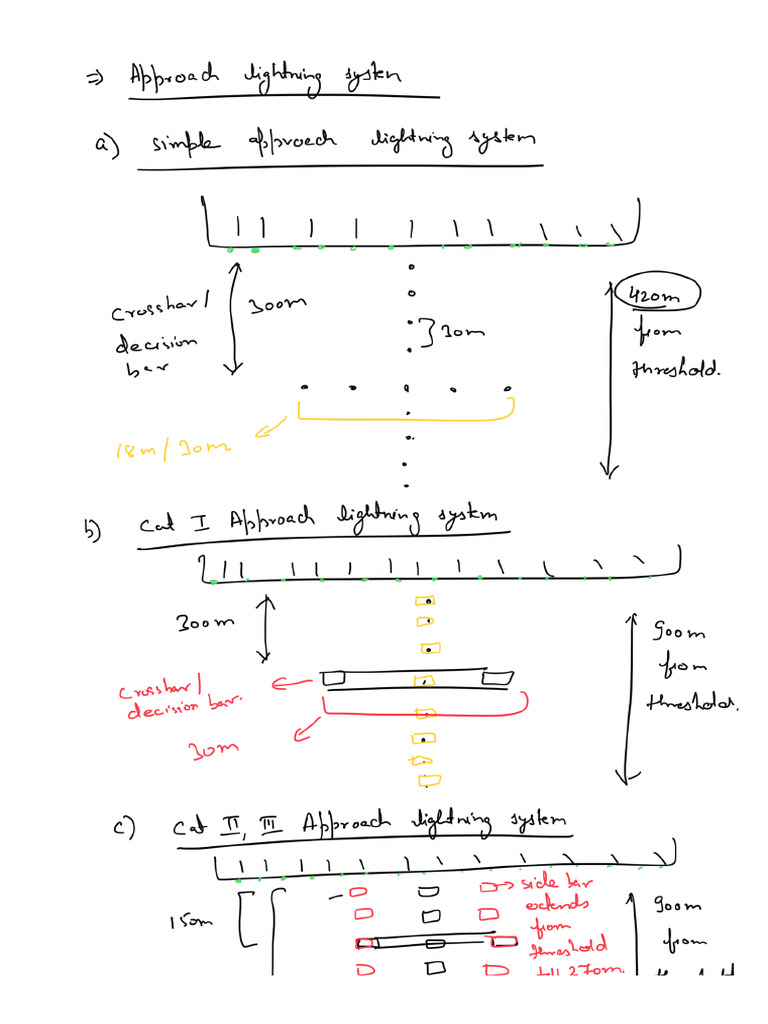 ⇒ Approach lightning system
a) simple approach lightning system
crossbar/
decision
bar
300m
30m
420m
from
threshold.
18m/30m
b) Cat I Approach lightning system
300m
crossbar/
decision bar.
30m
900m
from
threshold.
c) Cat II, III Approach lightning system
150m
→ side bar
extends
from
threshold
till 270m.
900m
from